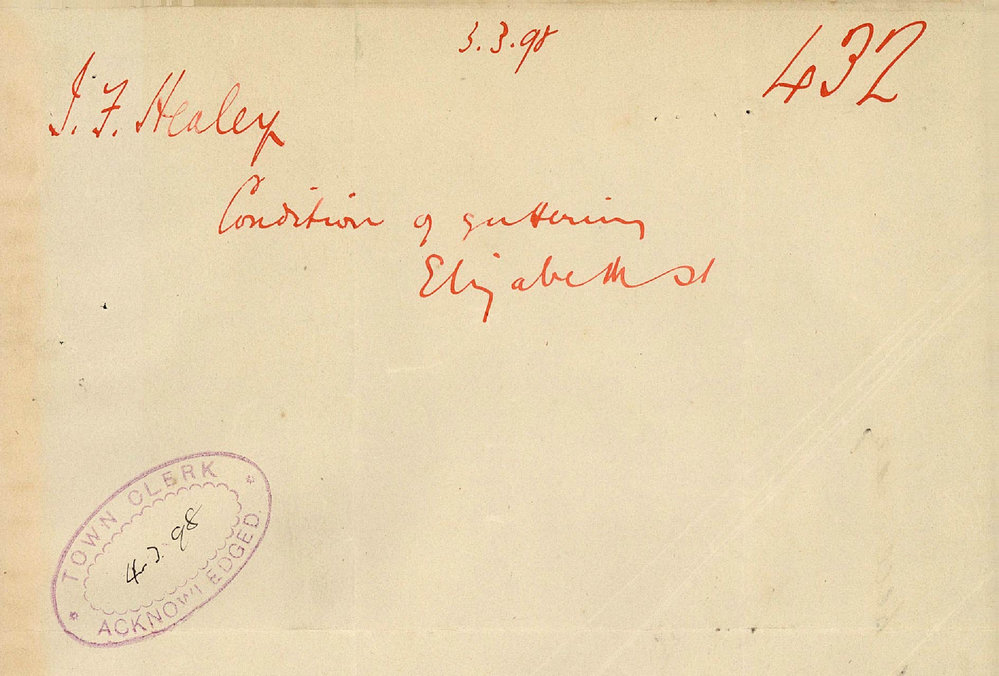 3.3.98
432
J. F. Healey
Condition of guttering
Elizabeth St
TOWN CLERK
4.3.98
ACKNOWLEDGED.